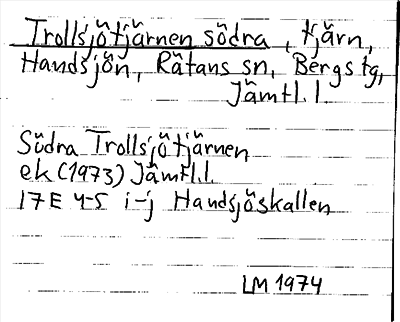 Trollsjötjärnen södra, tjärn,
Handsjön, Rätans sn, Bergs tg,
Jämtl. l.
Södra Trollsjötjärnen
ek (1973) Jämtl.l.
17E 4-5 i-j Handsjöskallen
LM 1974